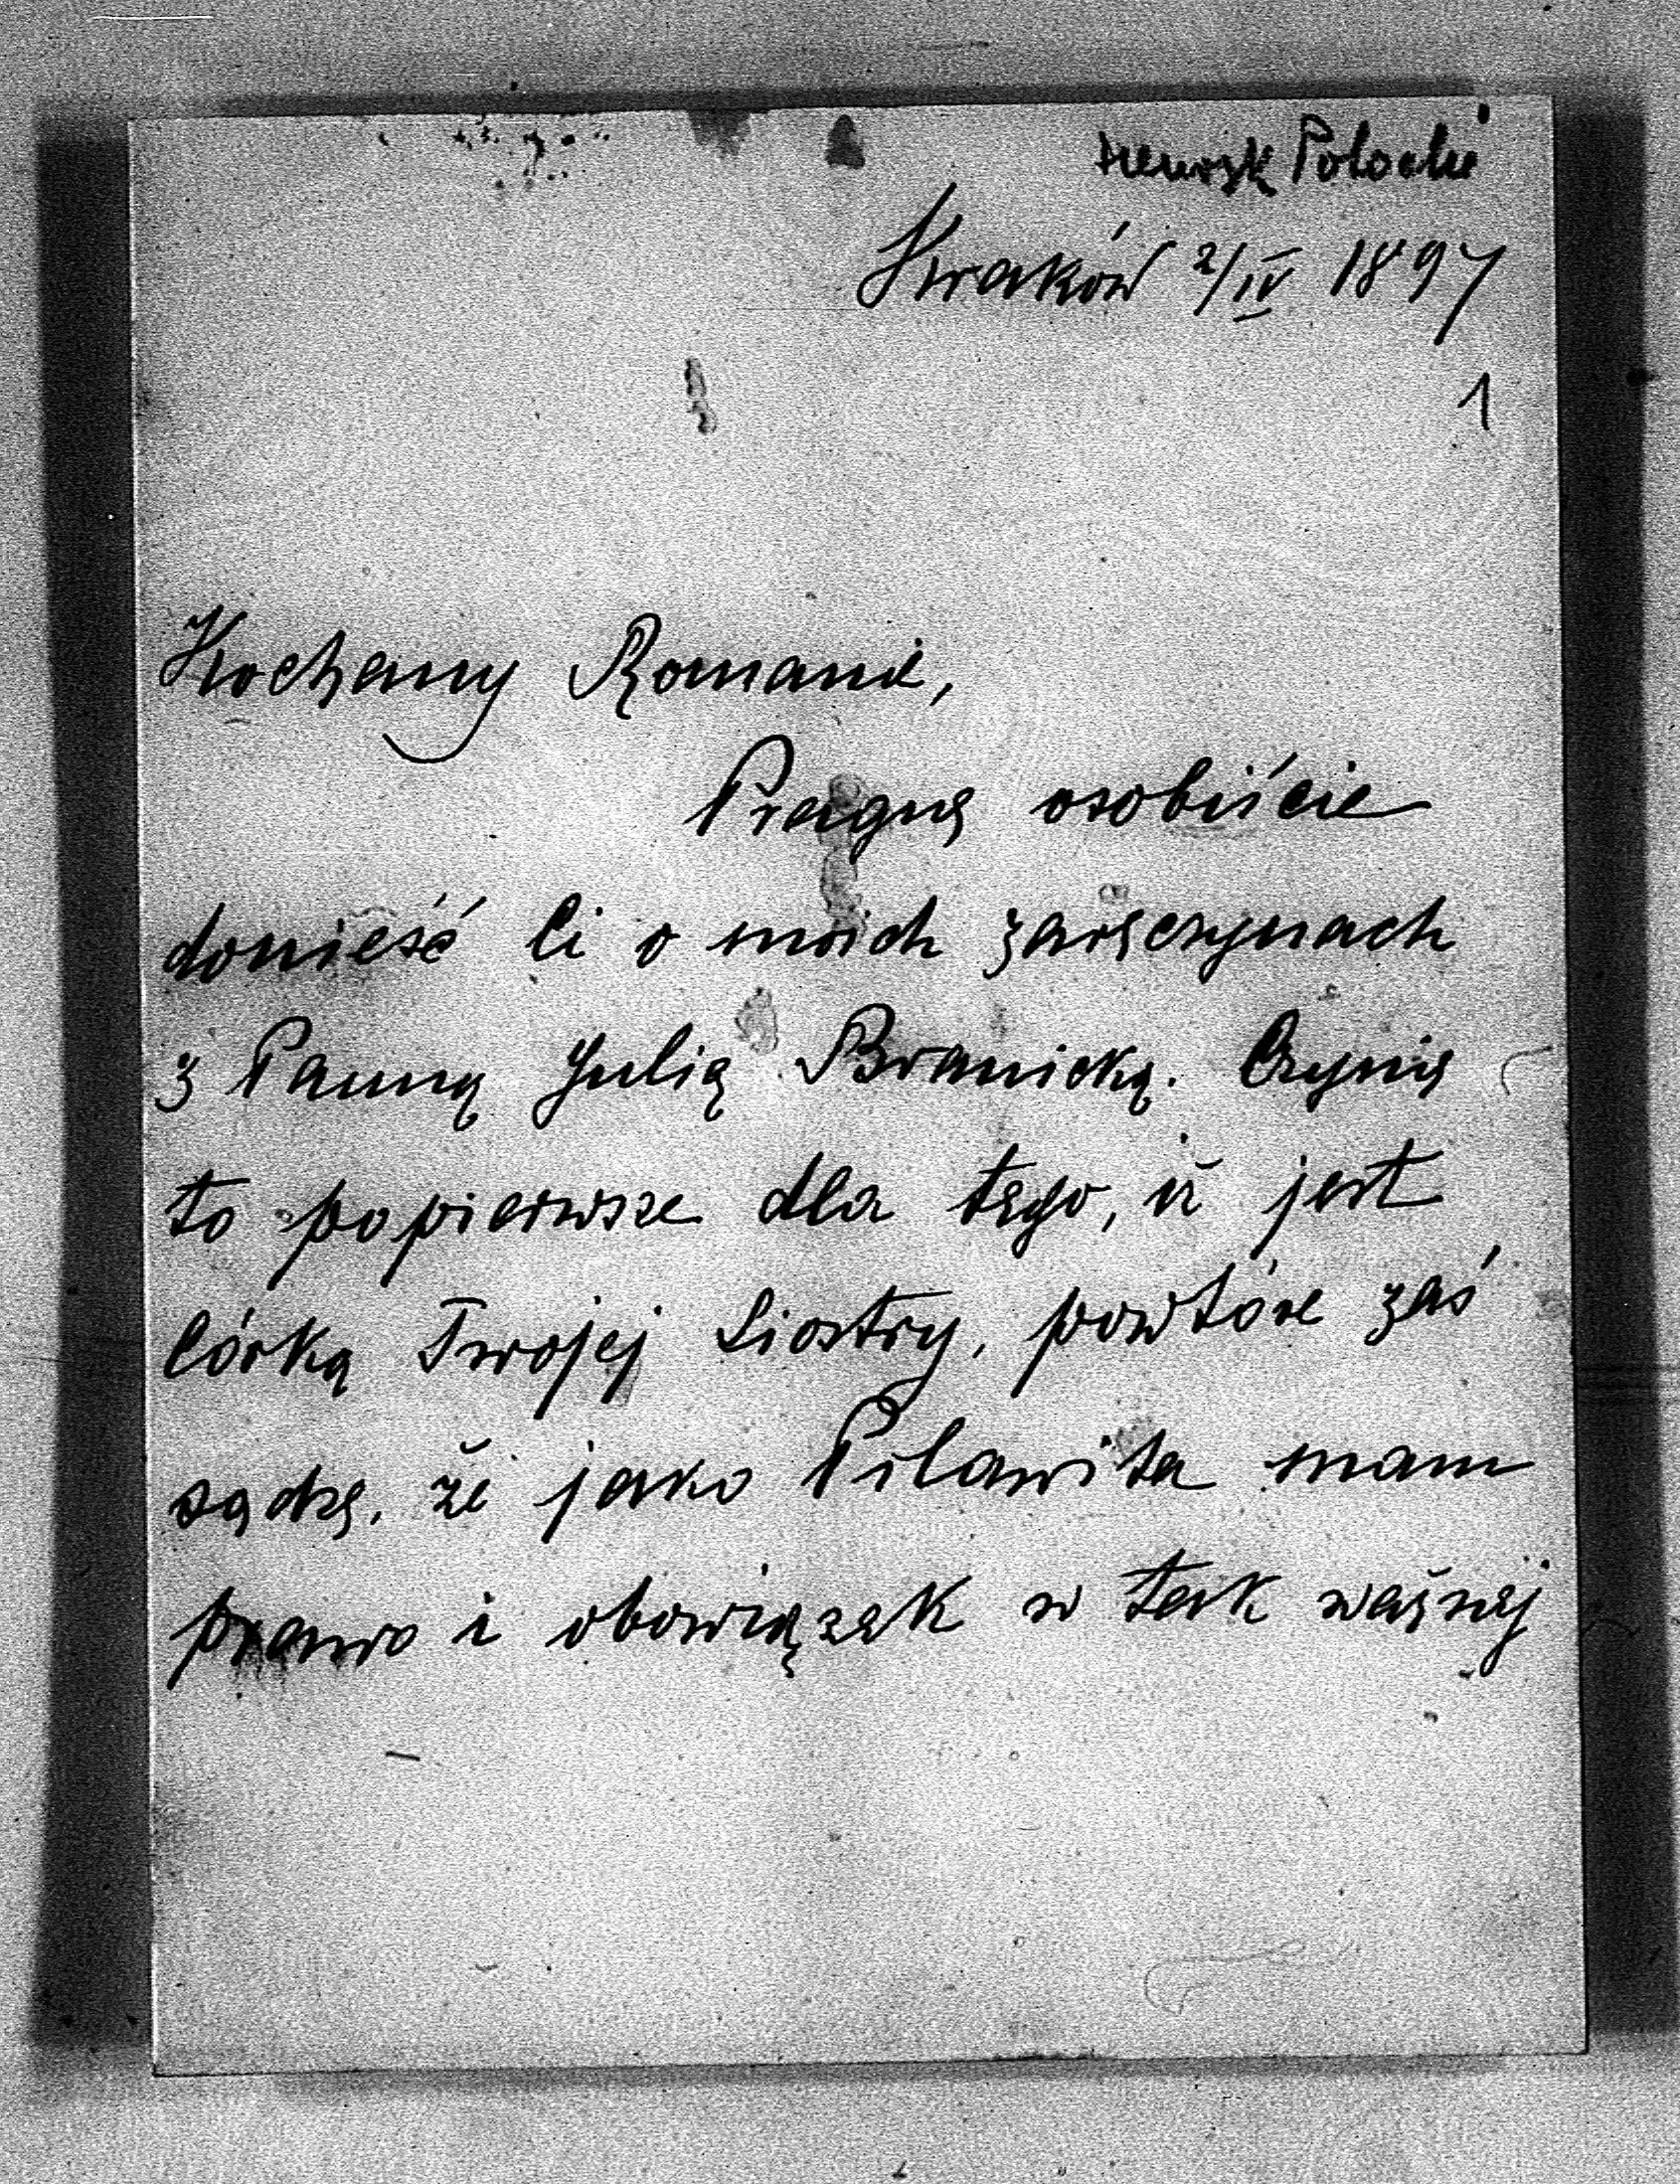 Potocki
Kraków 2/IV 1897
1
Kochany Romanie,
Pragnę osobiście
donieść Ci o moich zaręczynach
z Panną Julią Branicką. Czynię
to popierwsze dla tego, iż jest
Córką Twojej Siostry, powtóre zaś
sądzę, że jako Pilawita mam
prawo i obowiązek w tak ważnej